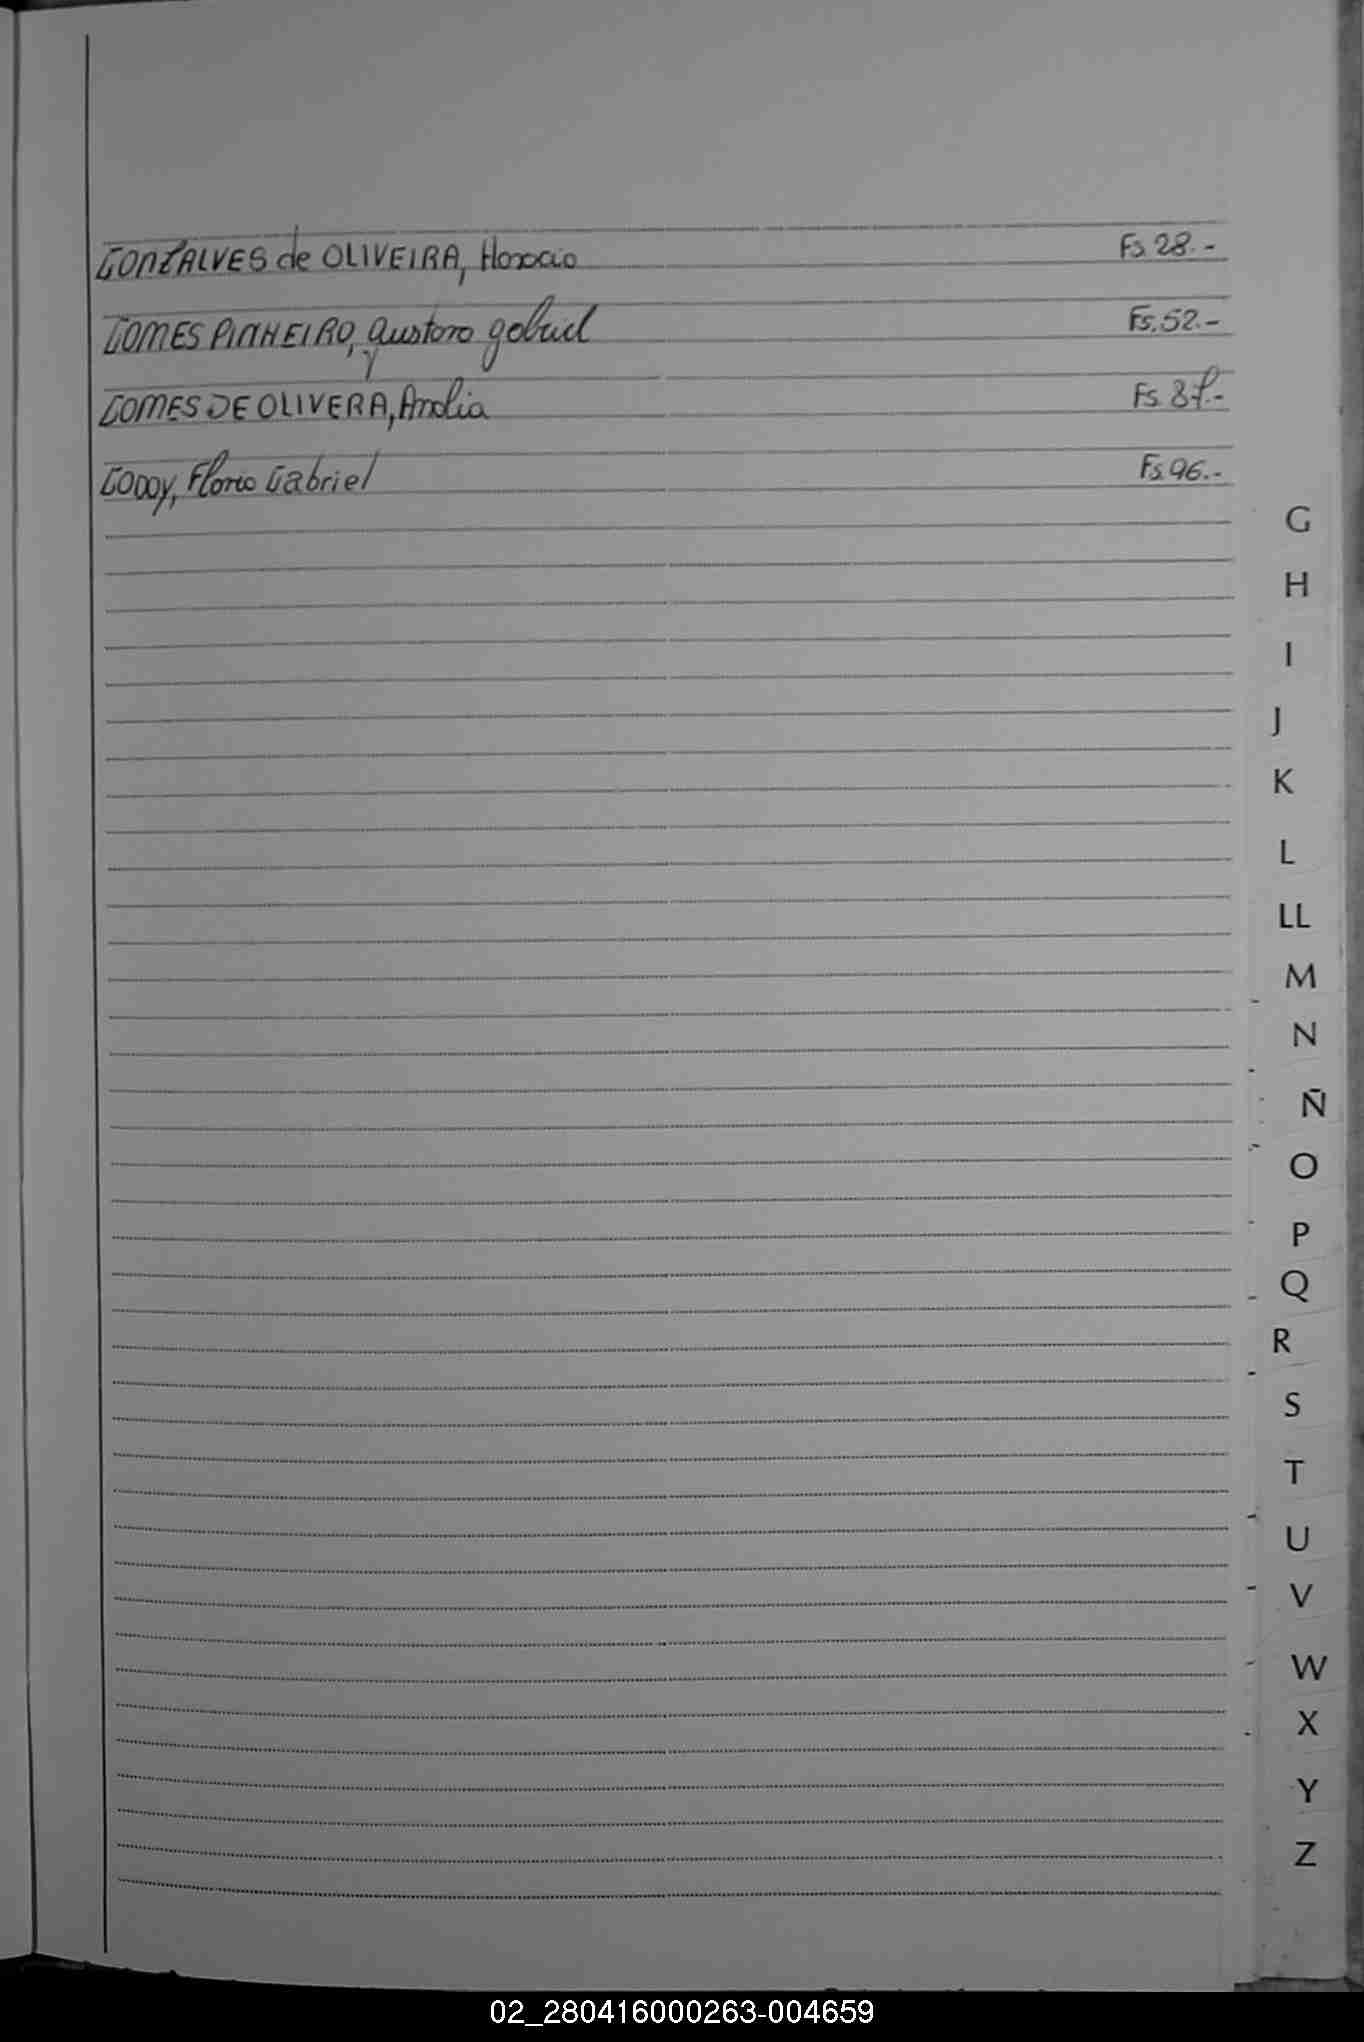 GONZALVES de OLIVEIRA, Horacio Fs. 28.-
GOMES PINHEIRO, Gustavo Gabriel Fs. 52.-
GOMES DE OLIVERA, Analia Fs. 87.-
GODOY, Florio Gabriel Fs. 96.-
G
H
I
J
K
L
LL
M
N
Ñ
O
P
Q
R
S
T
U
V
W
X
Y
Z
02_280416000263-004659